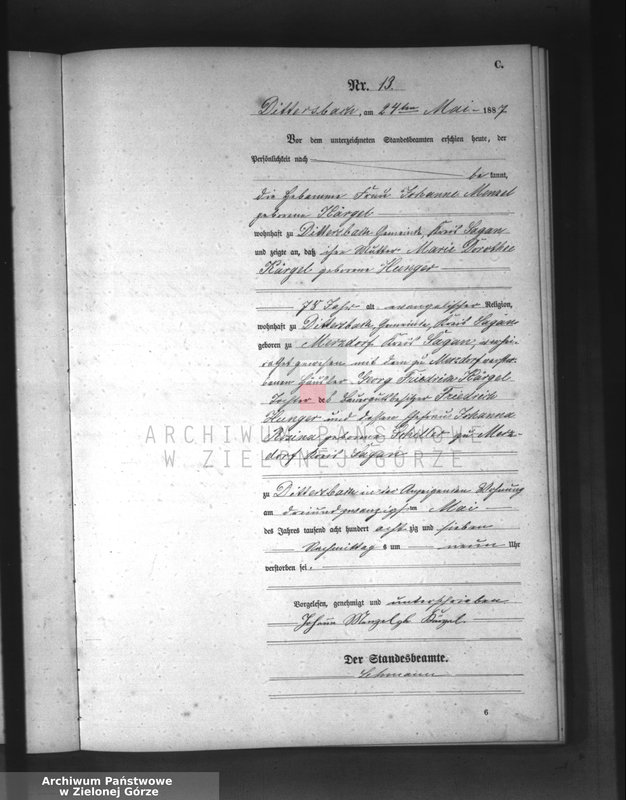 C.
Nr. 13.
Dittersbach, am 24ten Mai 1887
Vor dem unterzeichneten Standesbeamten erschien heute, der
Persönlichkeit nach
be kannt,
die Hebamme Frau Johanne Menzel
geborene Kärgel
wohnhaft zu Dittersbach Gemeinde, Kreis Sagan
und zeigte an, daß ihre Mutter Marie Dorothee
Kärgel geborene Hunger
78 Jahr alt evangelischer Religion,
wohnhaft zu Dittersbach, Gemeinde, Kreis Sagan
geboren zu Merzdorf Kreis Sagan, verhei-
rathet gewesen mit dem zu Merzdorf verstor-
benen Häusler Georg Friedrich Kärgel
Tochter des Bauergutsbesitzer Friedrich
Hunger und dessen Ehefrau Johanna
Rosina geborene zu Merz-
dorf Kreis Sagan
ARCHIWUM PAŃSTWOWE
W ZIELONEJ GÓRZE
zu Dittersbach in der Anzeigenden Wohnung
am dreiundzwanzigsten Mai
des Jahres tausend acht hundert achtzig und sieben
Nachmittags um neun Uhr
verstorben sei.
Vorgelesen, genehmigt und unterschrieben
Johanne Menzel gb Kärgel.
Der Standesbeamte.
Lehmann
6
Archiwum Państwowe
w Zielonej Górze